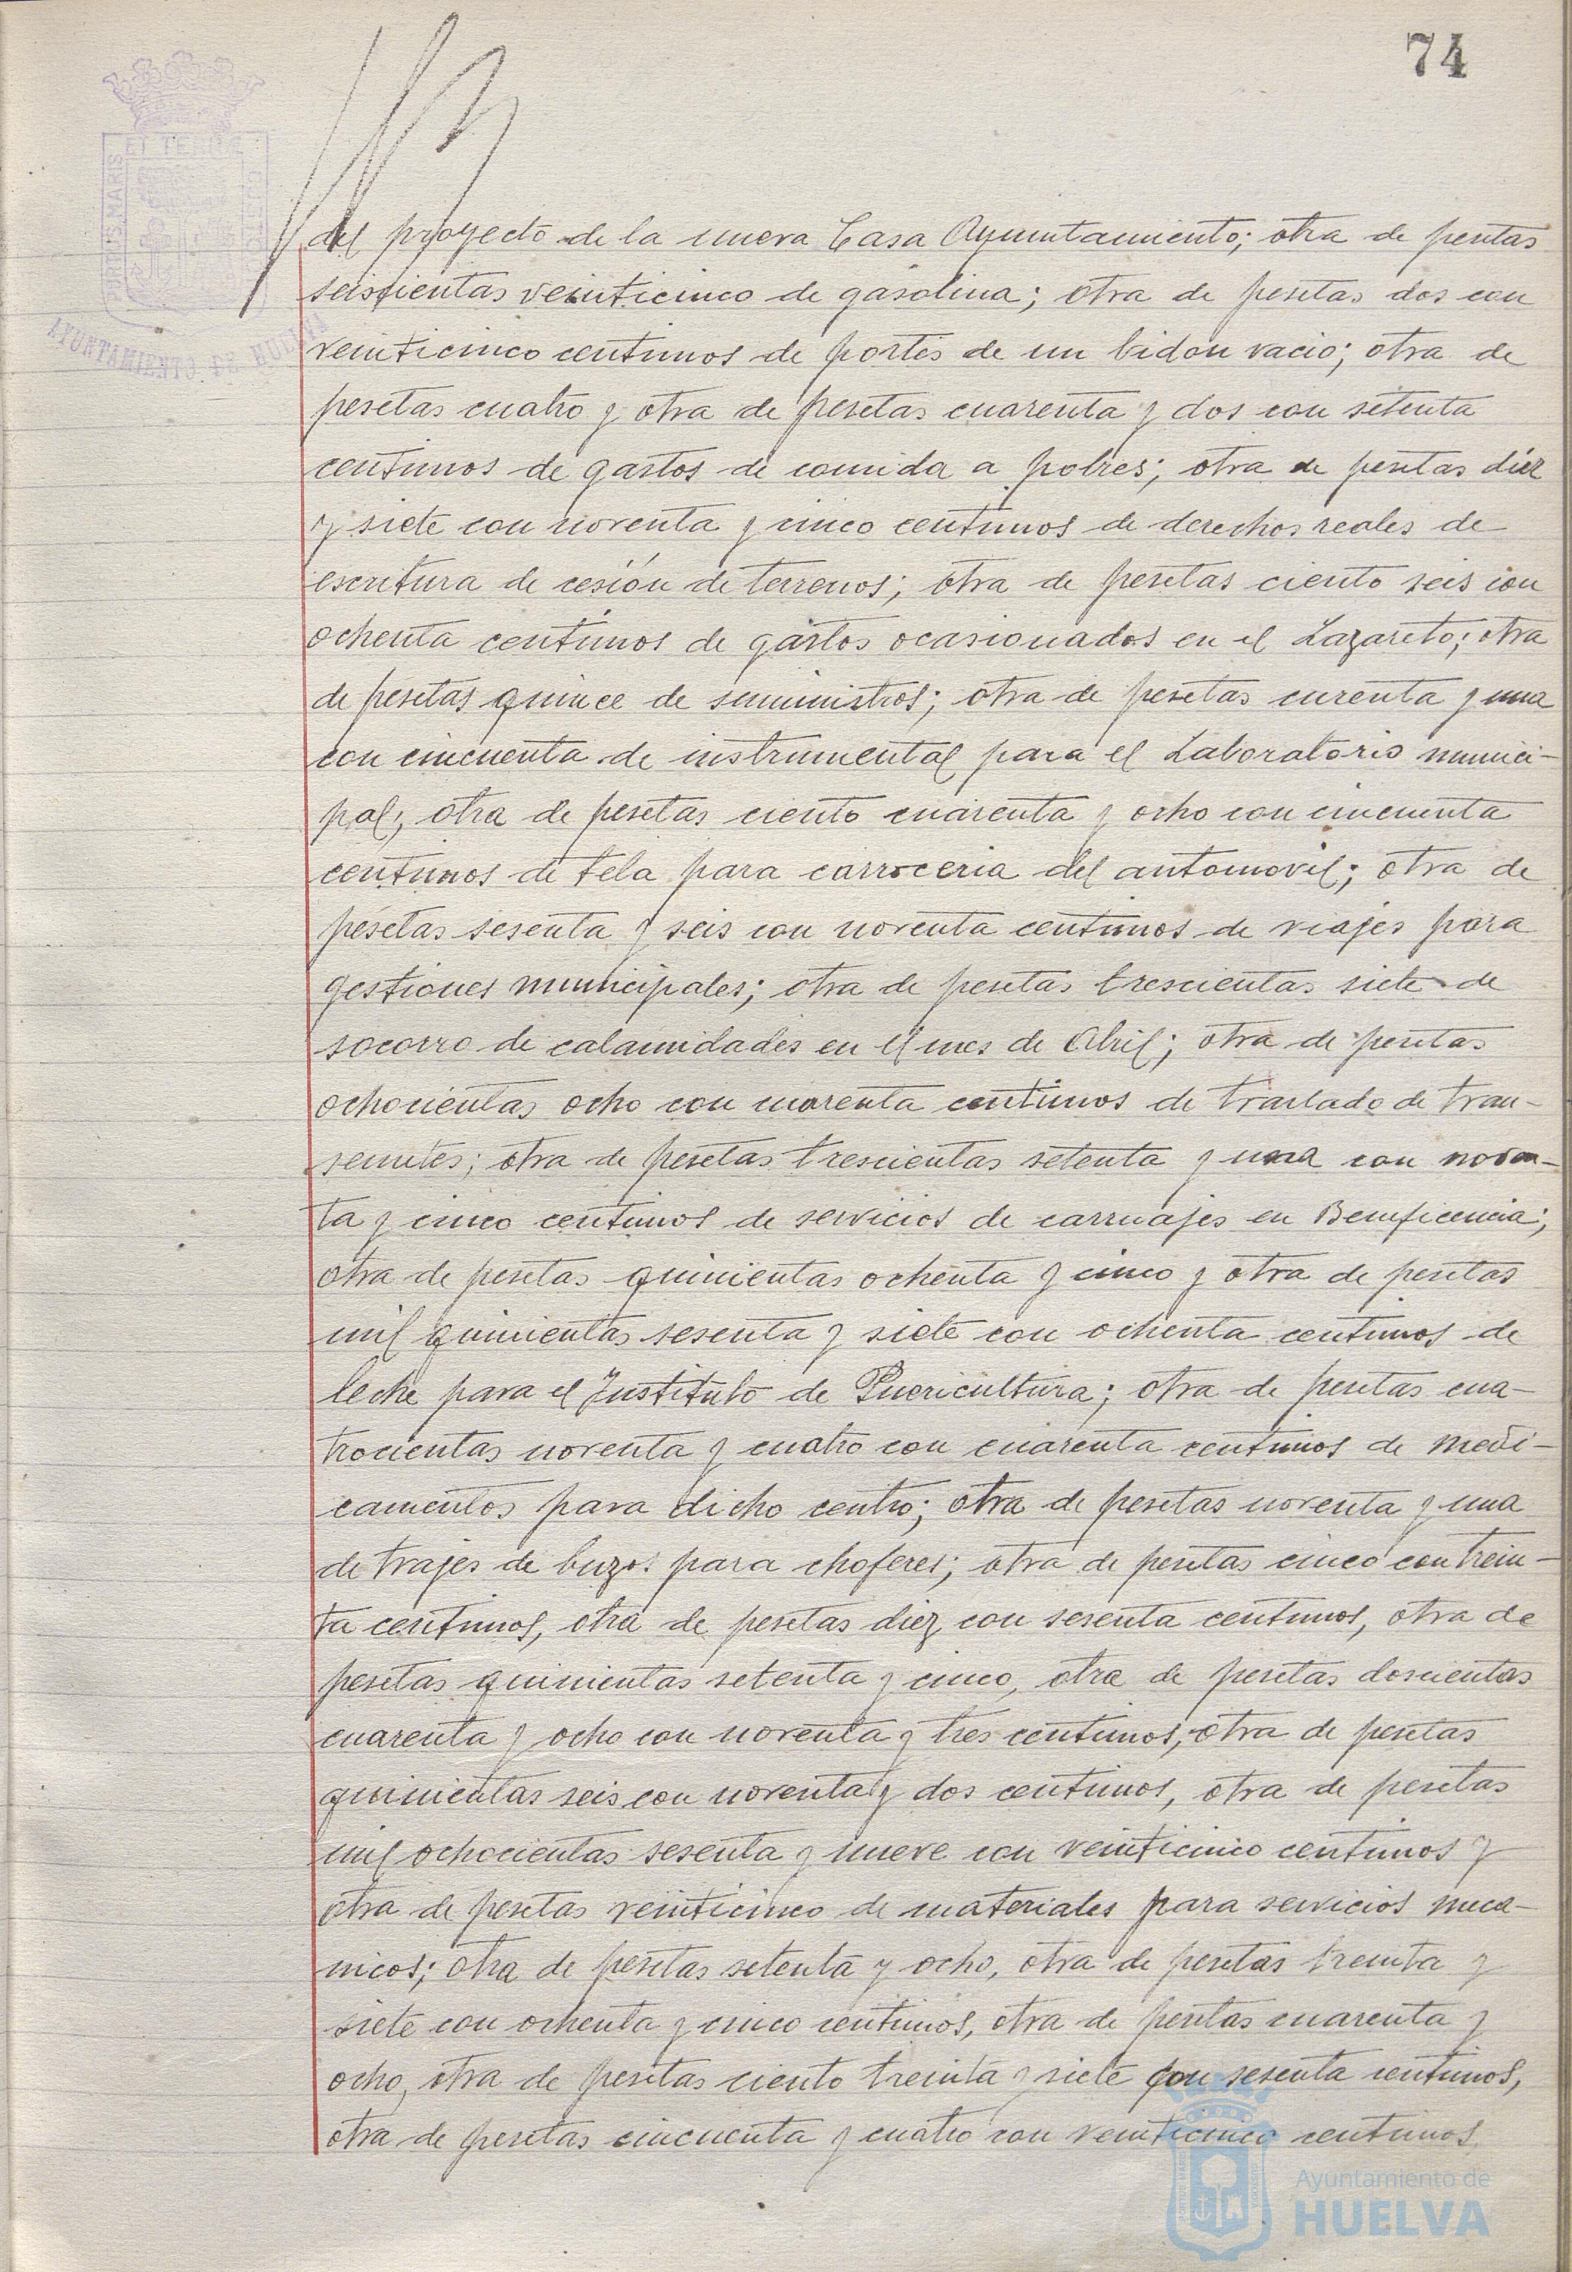 74
EI TERRÆ
PORTUS MARIS
AYUNTAMIENTO DE HUELVA
del proyecto de la nueva Casa Ayuntamiento; otra de pesetas
seiscientas veinticinco de gasolina; otra de pesetas dos con
veinticinco centimos de portes de un bidon vacio; otra de
pesetas cuatro y otra de pesetas cuarenta y dos con setenta
centimos de gastos de comida a pobres; otra de pesetas diez
y siete con noventa y cinco centimos de derechos reales de
escritura de cesión de terrenos; otra de pesetas ciento seis con
ochenta centimos de gastos ocasionados en el Lazareto; otra
de pesetas quince de suministros; otra de pesetas curenta y una
con cincuenta de instrumental para el Laboratorio munici-
pal; otra de pesetas ciento cuarenta y ocho con cincuenta
centimos de tela para carroceria del automovil; otra de
pesetas sesenta y seis con noventa centimos de viajes para
gestiones municipales; otra de pesetas trescientas siete de
socorro de calamidades en el mes de Abril; otra de pesetas
ochocientas ocho con cuarenta centimos de traslado de tran-
seuntes; otra de pesetas trescientas setenta y una con noven-
ta y cinco centimos de servicios de carruajes en Beneficencia;
otra de pesetas quinientas ochenta y cinco y otra de pesetas
mil quinientas sesenta y siete con ochenta centimos de
leche para el Instituto de Puericultura; otra de pesetas cua-
trocientas noventa y cuatro con cuarenta centimos de medi-
camentos para dicho centro; otra de pesetas noventa y una
de trajes de buzos para choferes; otra de pesetas cinco con trein-
ta centimos, otra de pesetas diez con sesenta centimos, otra de
pesetas quinientas setenta y cinco, otra de pesetas doscientas
cuarenta y ocho con noventa y tres centimos, otra de pesetas
quinientas seis con noventa y dos centimos, otra de pesetas
mil ochocientas sesenta y nueve con veinticinco centimos y
otra de pesetas veinticinco de materiales para servicios meca-
nicos; otra de pesetas setenta y ocho, otra de pesetas treinta y
siete con ochenta y cinco centimos, otra de pesetas cuarenta y
ocho, otra de pesetas ciento treinta y siete con sesenta centimos,
otra de pesetas cincuenta y cuatro con veinticinco centimos
Ayuntamiento de
HUELVA